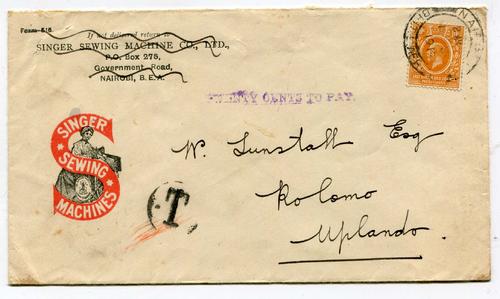 Form 516.
If not delivered return to
SINGER SEWING MACHINE CO., LTD.,
P.O. Box 275,
Government Road,
NAIROBI, B.E.A.
TWENTY CENTS TO PAY.
SINGER
SEWING
MACHINES
T
W. Tunstall Esq
Kolomo
Uplando.